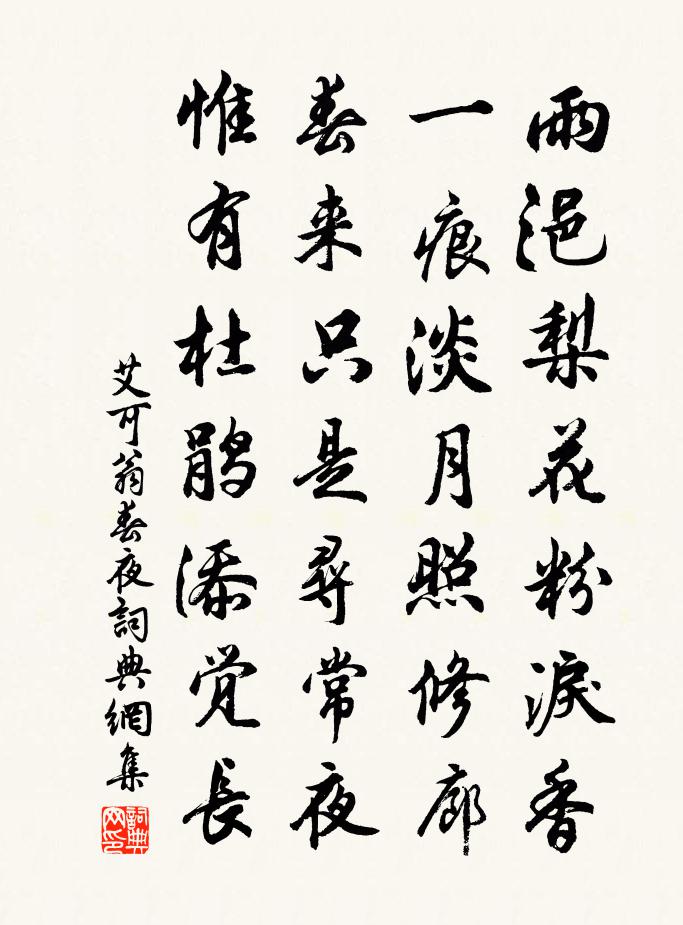 雨浥梨花粉淚香
一痕淡月照修廊
春来只是尋常夜
惟有杜鹃添觉長
艾可翁春夜詞典網集
詞典网印